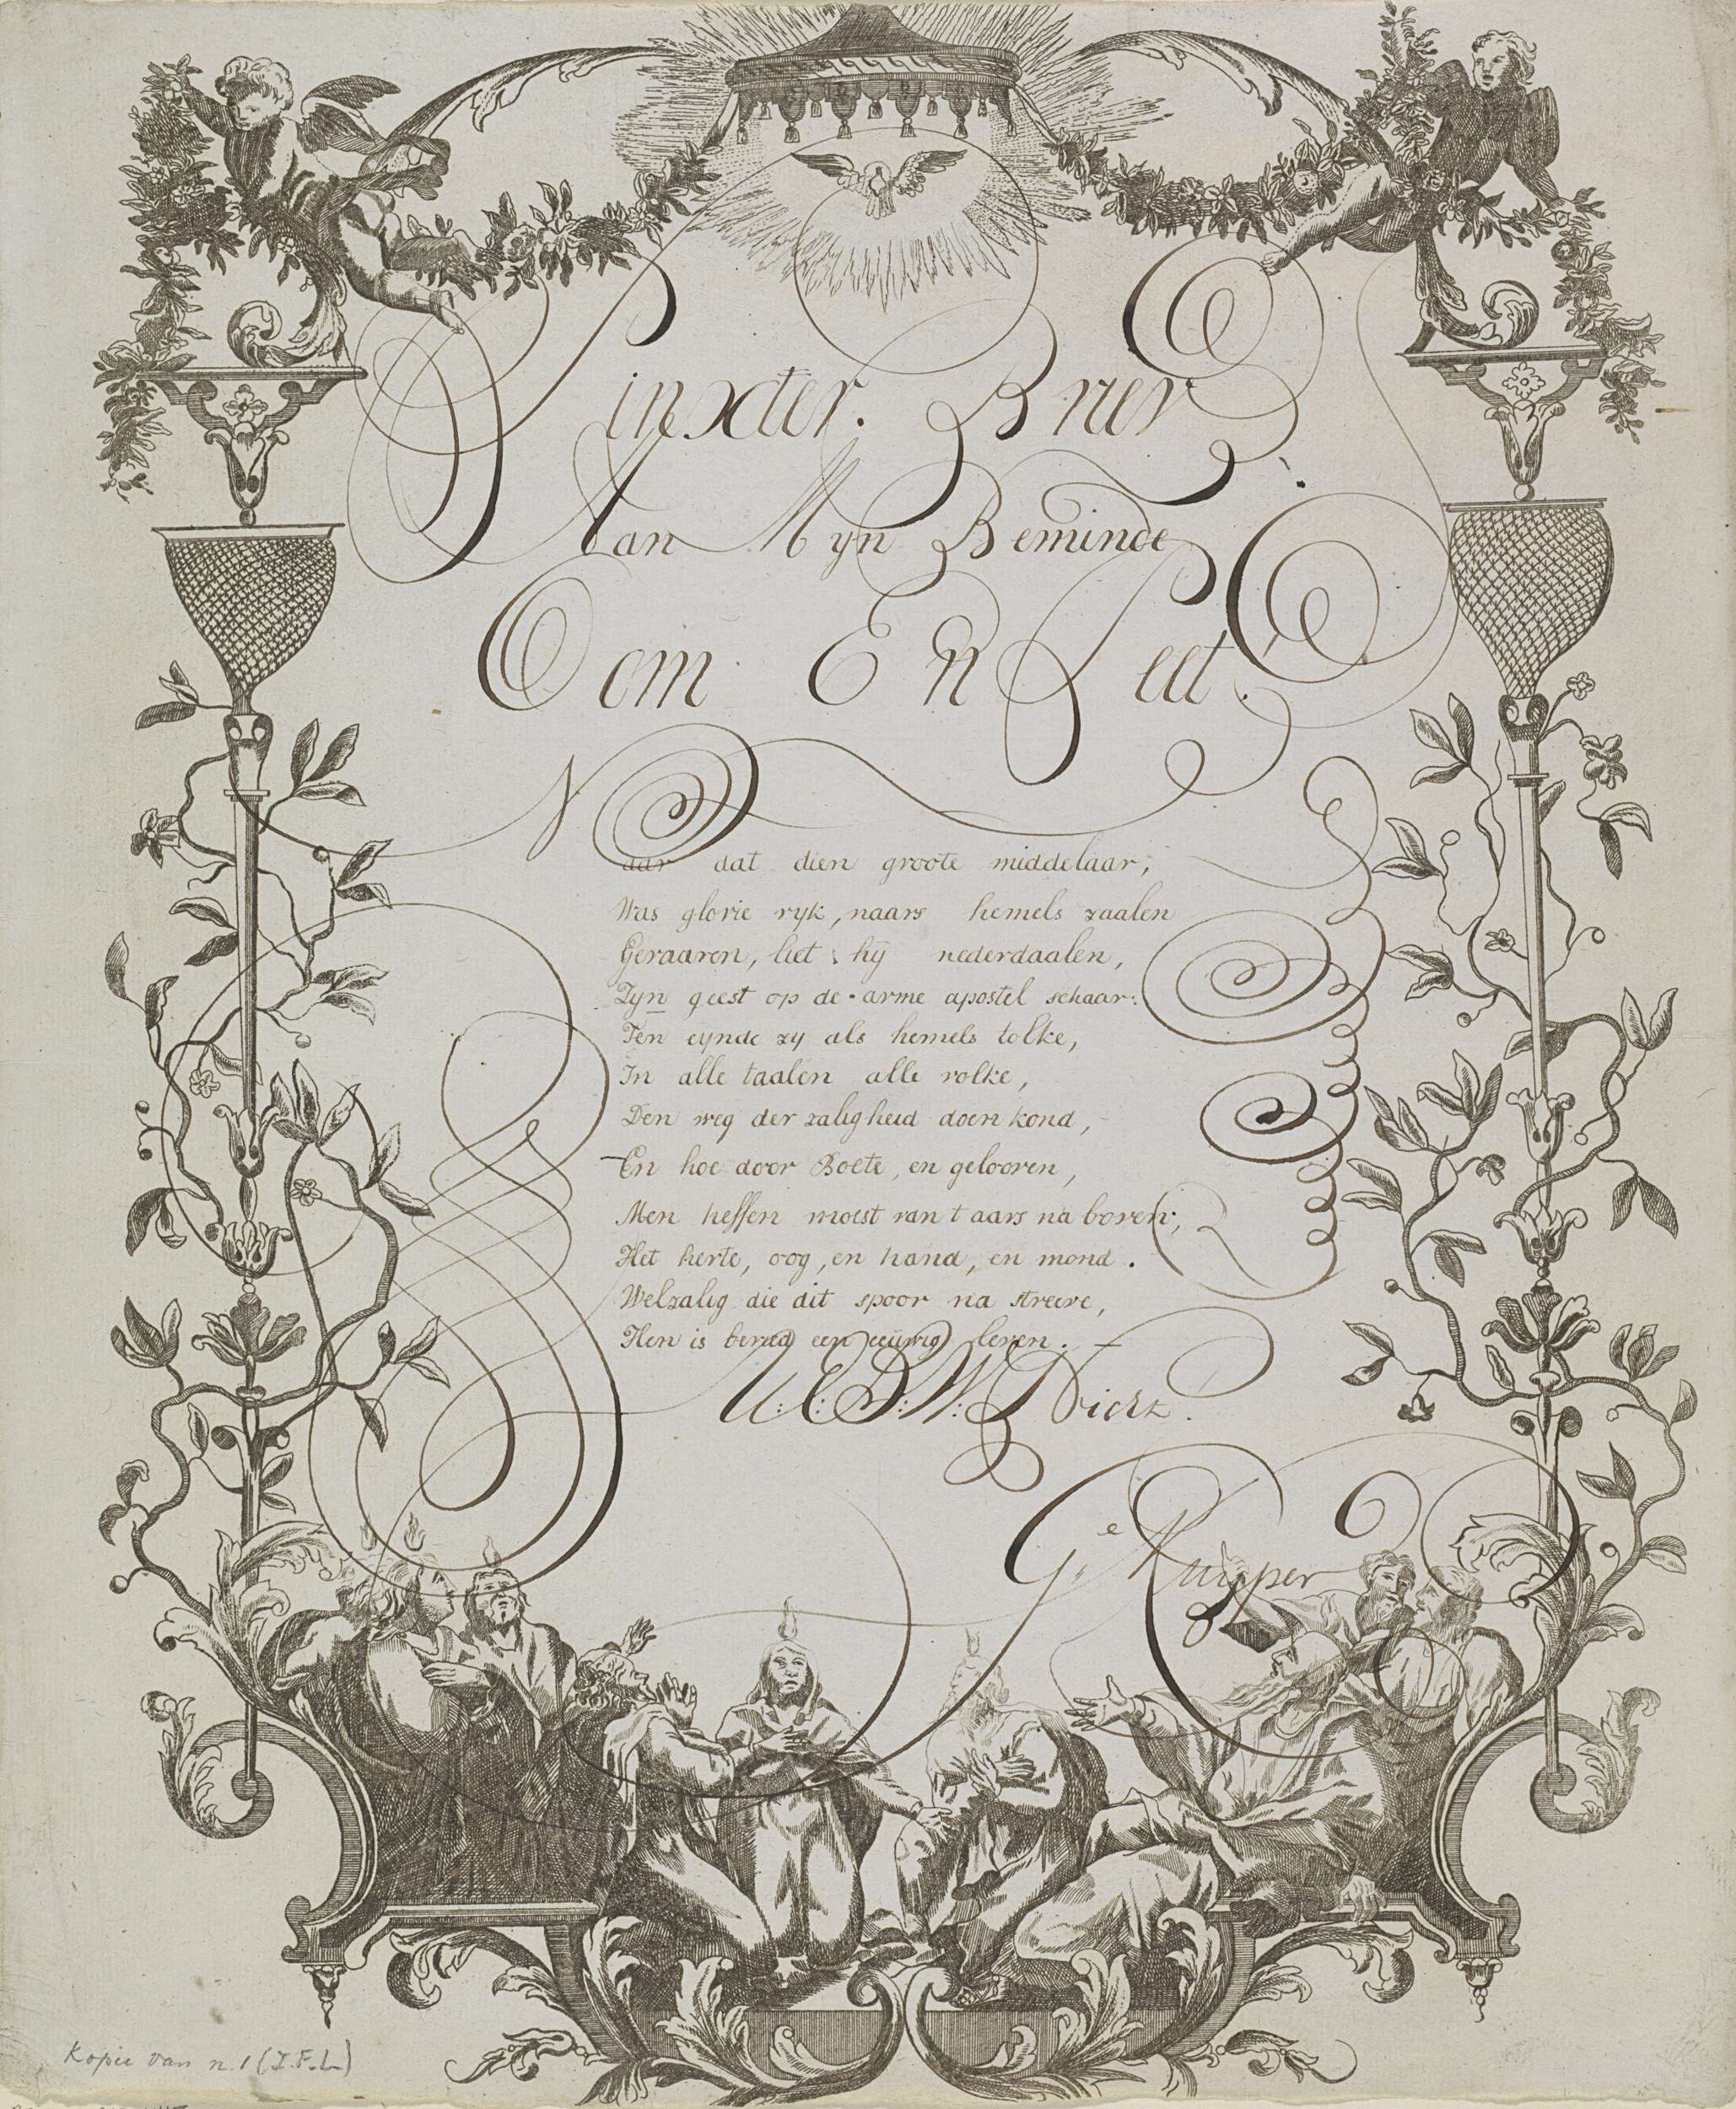 Pinxter. Brief
Aan Mijn Beminde
Oom En Peet.
Naar dat dien groote middelaar,
Was glorie ryk, naars hemels zaalen
Gevaaren, liet hij nederdaalen,
Zyn geest op de arme apostel schaar:
Ten eynde zy als hemels tolke,
In alle taalen alle volke,
Den weg der zaligheid doen kond,
En hoe door Boete, en gelooven,
Men heffen moest van t aars na boven,
Het herte, oog, en hand, en mond.
Welzalig die dit spoor na streeve,
Hen is bereid een eeuwig leven.
U: E: D: W:
Ge Kuijper
Kopie van n. 1 (I.F.L)